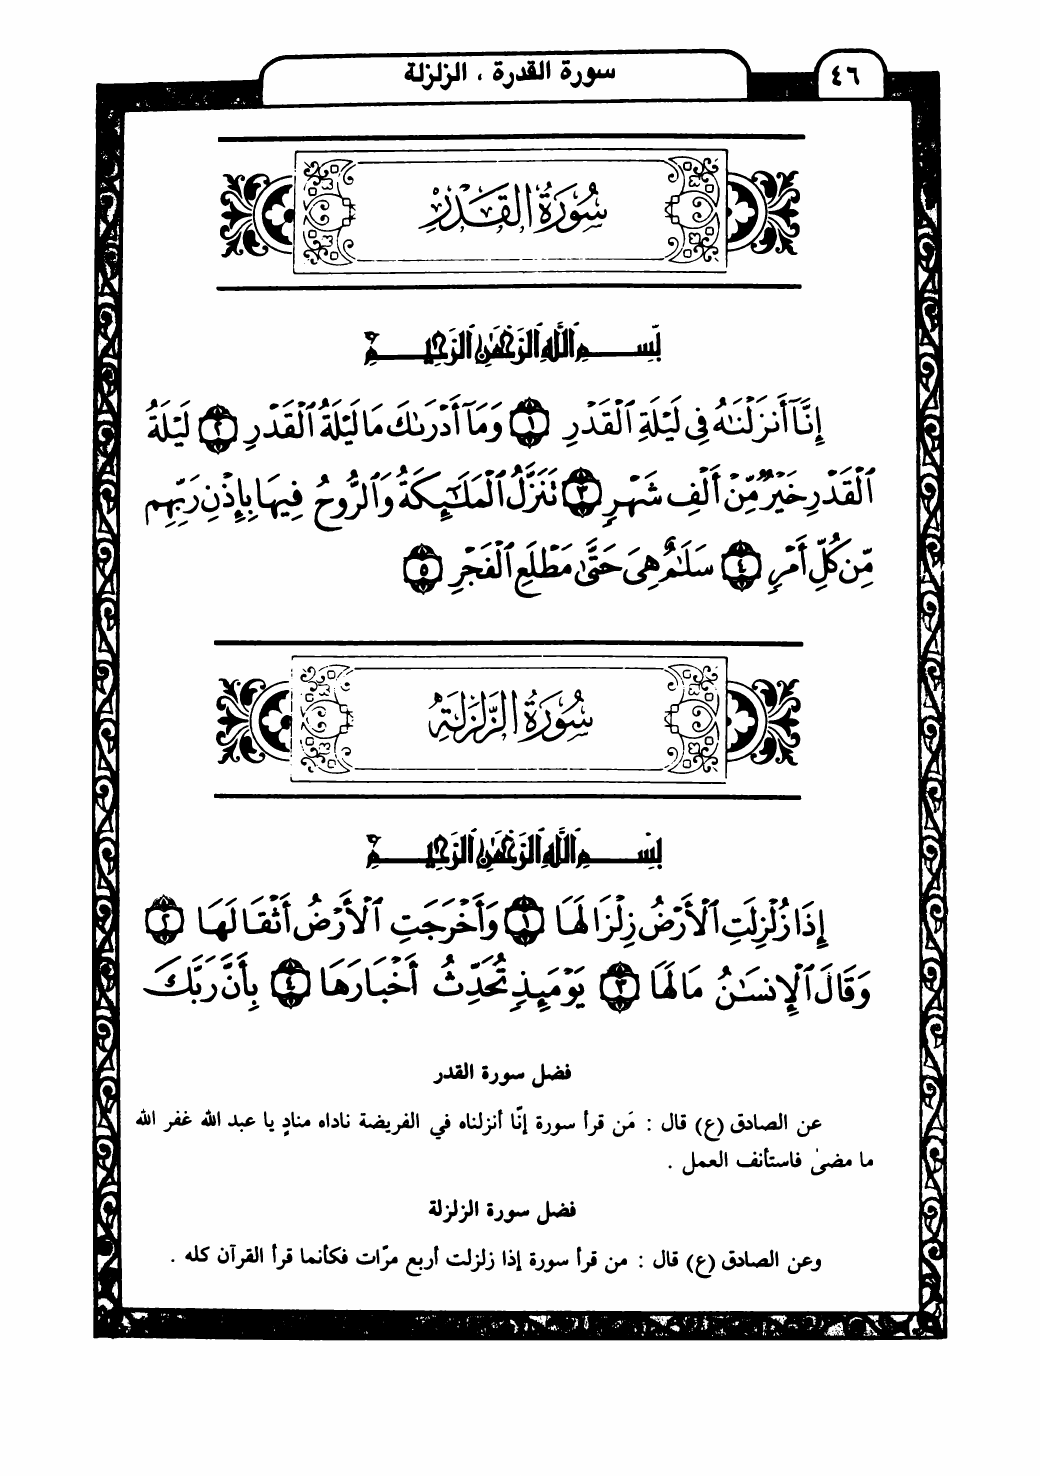 ٤٦
سورة القدرة ، الزلزلة
سُورَةُ القَدَرْ
بِّسْمِ ٱللَّهِ ٱلرَّحْمَٰنِ ٱلرَّحِيمِ
إِنَّآ أَنزَلْنَٰهُ فِى لَيْلَةِ ٱلْقَدْرِ ١ وَمَآ أَدْرَىٰكَ مَا لَيْلَةُ ٱلْقَدْرِ ٢ لَيْلَةُ
ٱلْقَدْرِ خَيْرٌ مِّنْ أَلْفِ شَهْرٍ ٣ تَنَزَّلُ ٱلْمَلَٰٓئِكَةُ وَٱلرُّوحُ فِيهَا بِإِذْنِ رَبِّهِم
مِّن كُلِّ أَمْرٍ ٤ سَلَٰمٌ هِىَ حَتَّىٰ مَطْلَعِ ٱلْفَجْرِ ٥
سُورَةُ الزَّلزَلَةِ
بِسْمِ ٱللَّهِ ٱلرَّحْمَٰنِ ٱلرَّحِيمِ
إِذَا زُلْزِلَتِ ٱلْأَرْضُ زِلْزَالَهَا ١ وَأَخْرَجَتِ ٱلْأَرْضُ أَثْقَالَهَا ٢
وَقَالَ ٱلْإِنسَٰنُ مَا لَهَا ٣ يَوْمَئِذٍ تُحَدِّثُ أَخْبَارَهَا ٤ بِأَنَّ رَبَّكَ
فضل سورة القدر
عن الصادق (ع) قال : مَن قرأ سورة إنّا أنزلناه في الفريضة ناداه منادٍ يا عبد الله غفر الله
ما مضىٰ فاستأنف العمل .
فضل سورة الزلزلة
وعن الصادق (ع) قال : من قرأ سورة إذا زلزلت أربع مرّات فكأنما قرأ القرآن كله .